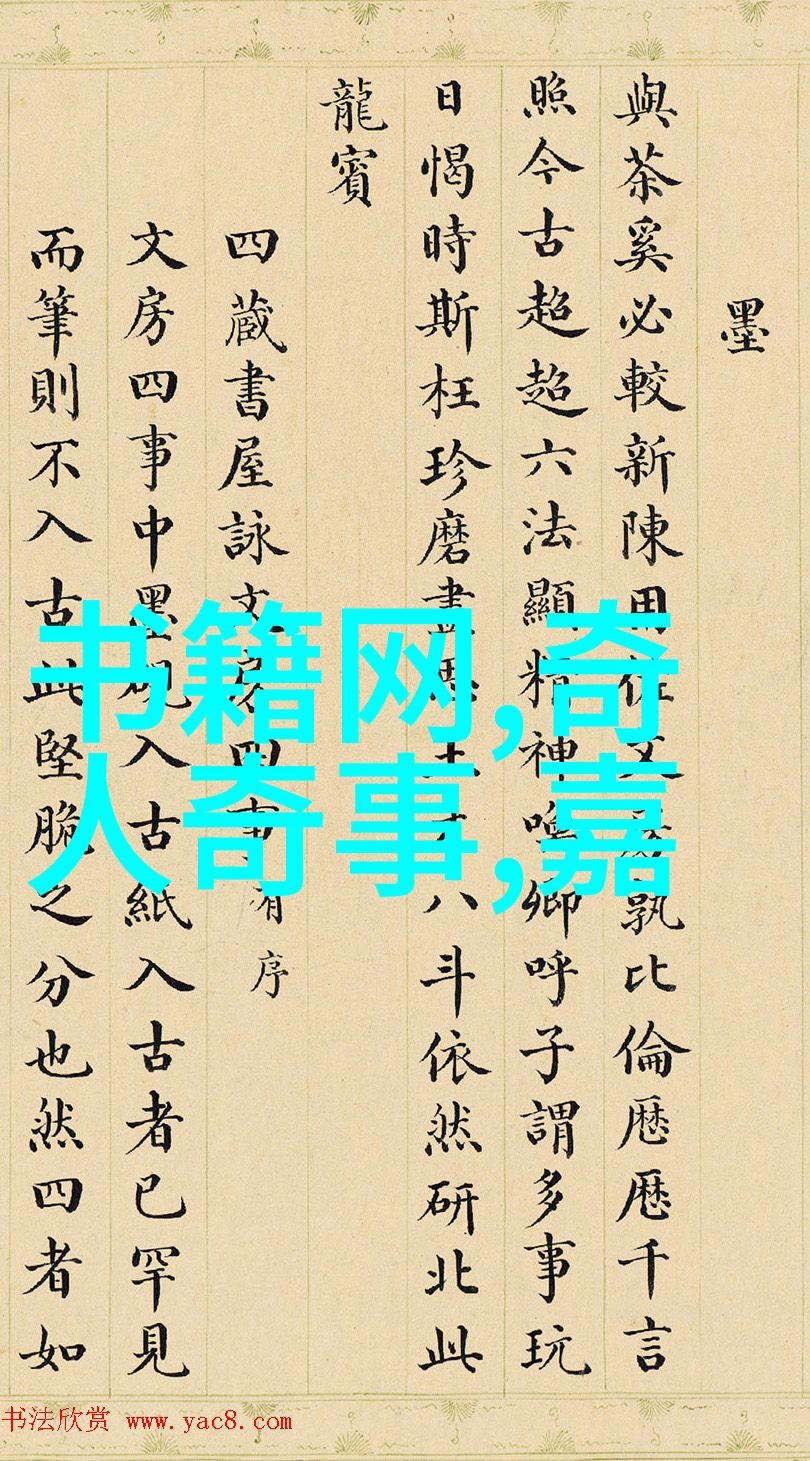 墨
與茶奚必較新陳用佐文孰比倫厯厯千言
照今古超超六法顯精神喚卿呼子謂多事玩
日愒時斯枉珍磨盡八斗依然研北此
龍賓
四蔵書屋詠文房四事有序
文房四事中墨硯入古紙入古者已罕見
而筆則不入古此堅脆之分也然四者如
书籍网,奇
人奇事,嘉
书法欣赏 www.yac8.com